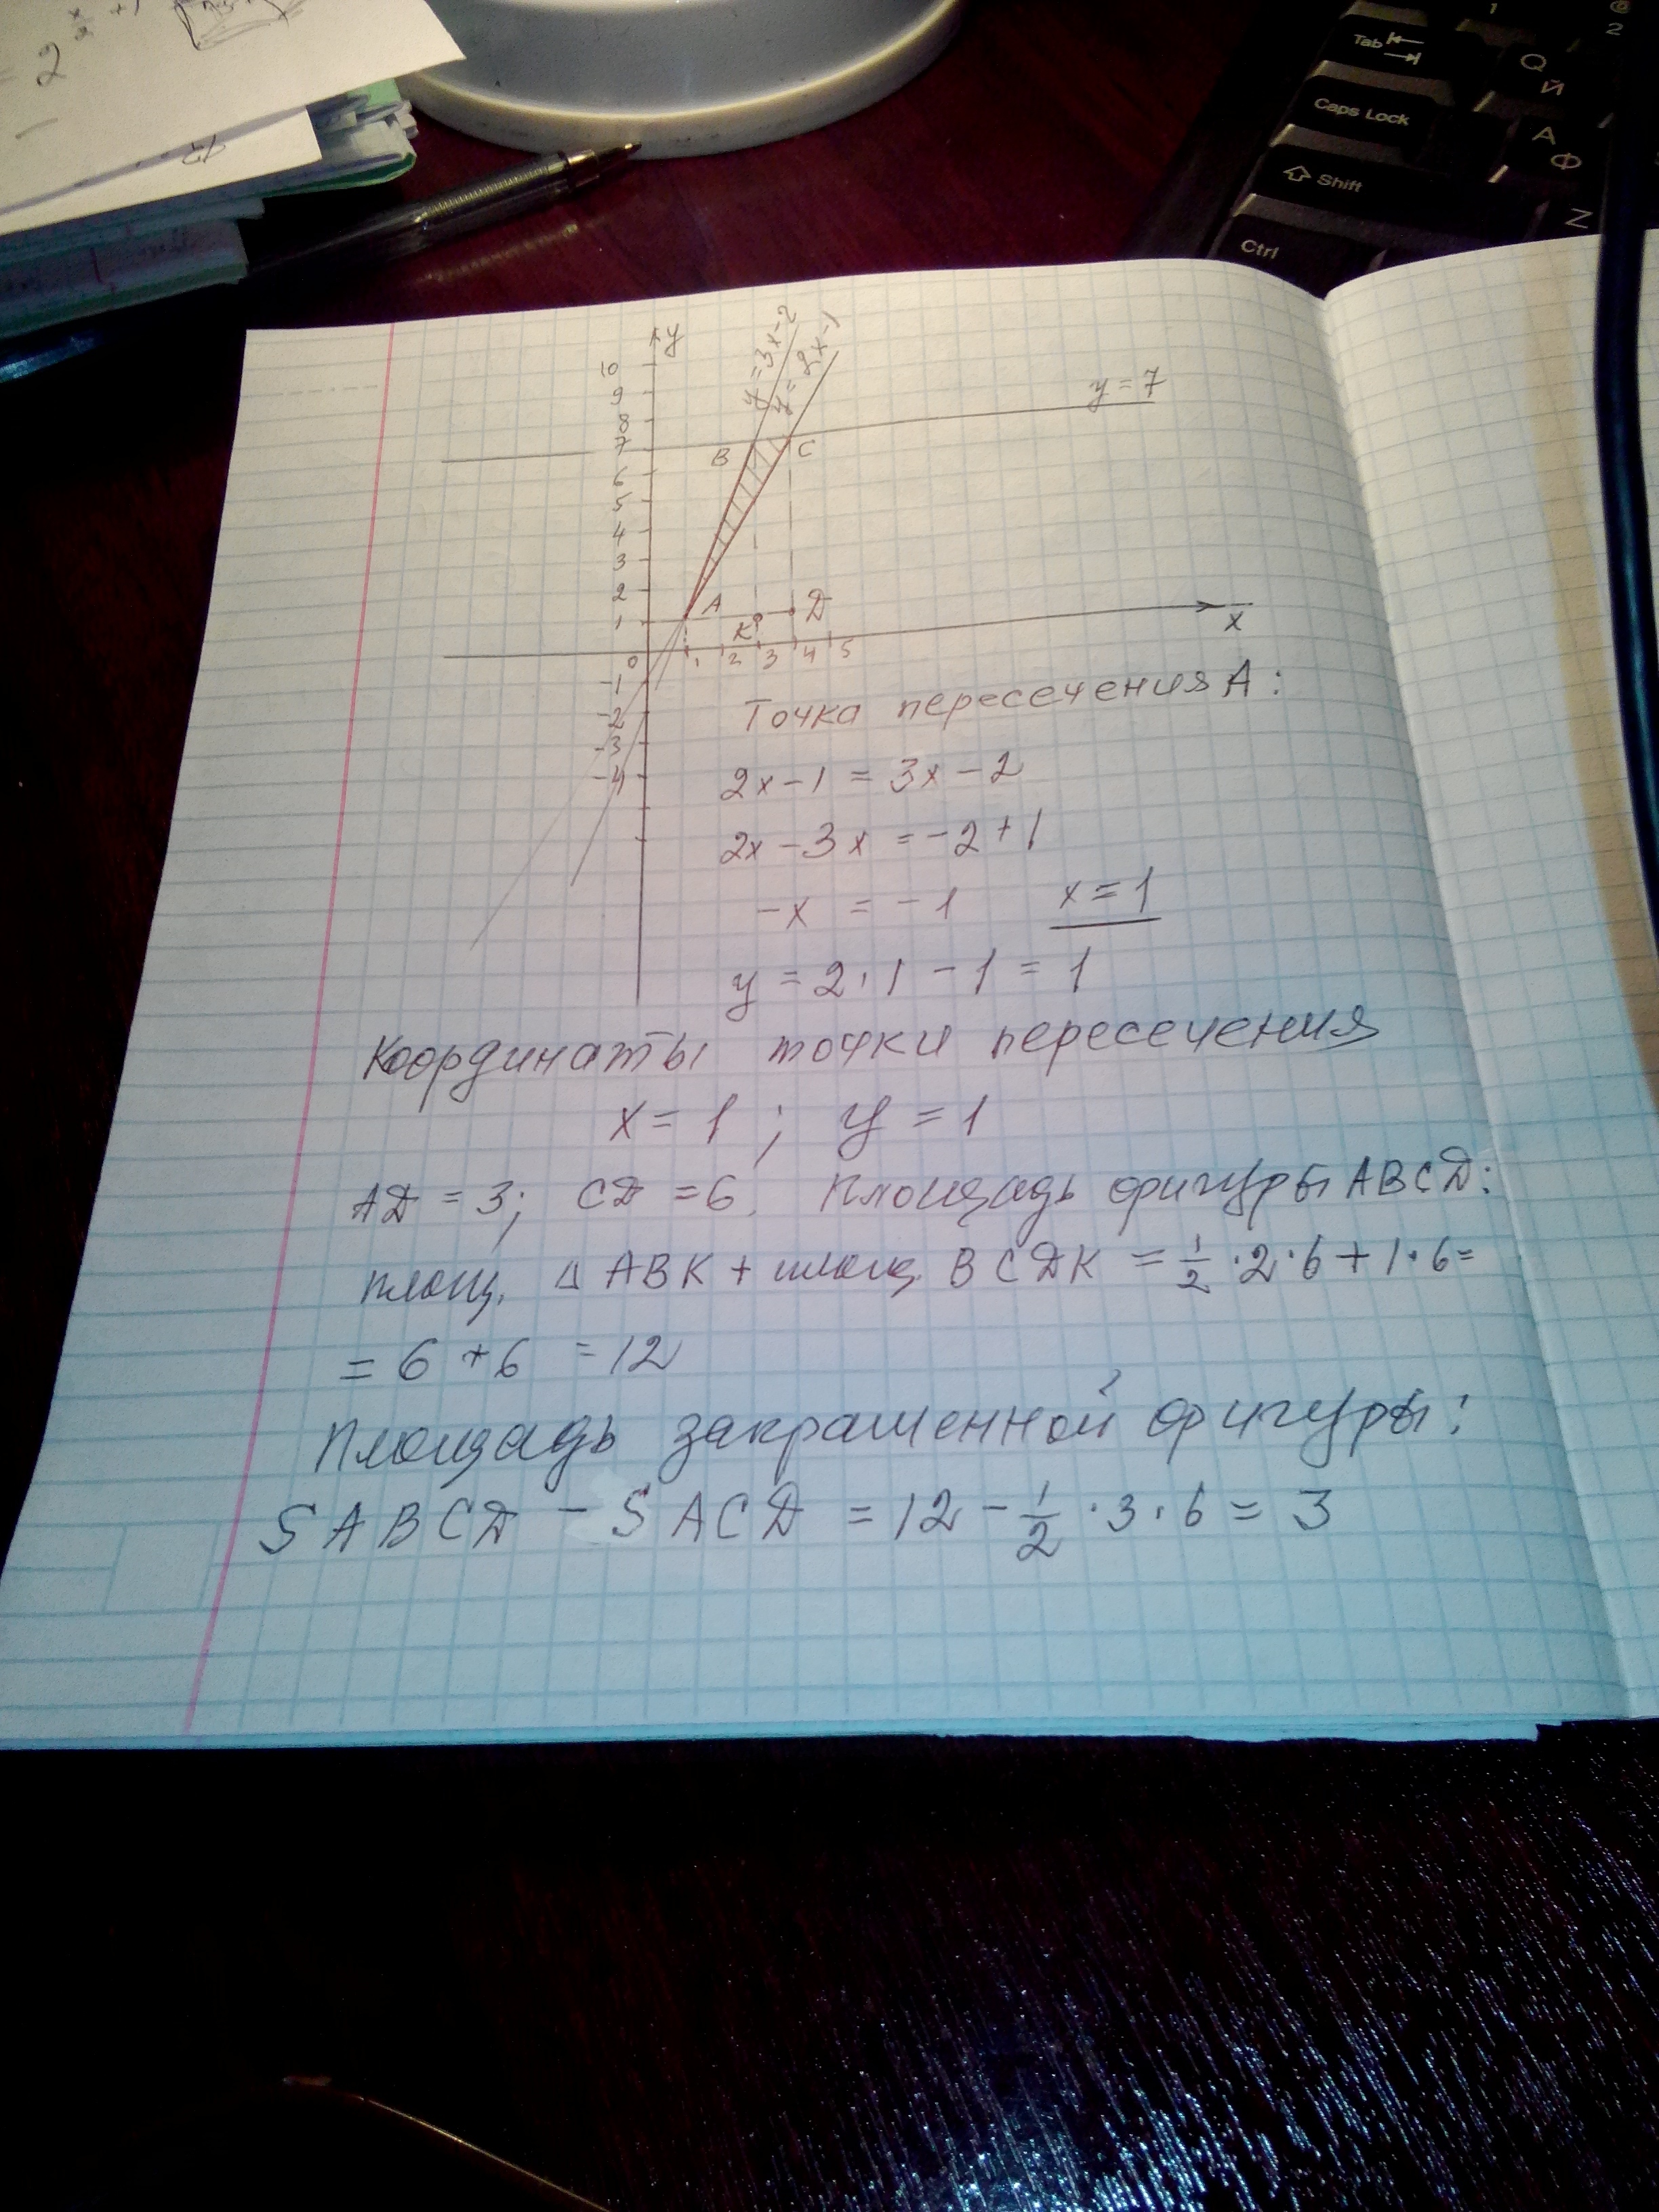 2
x/2 + 1
Tab
Caps Lock
Shift
Ctrl
1
2
Q
Й
A
Ф
Z
y
y = 3x - 2
y = 2x - 1
y = 7
10
9
8
7
6
5
4
3
2
1
B
C
A
K
D
x
0
1 2 3 4 5
-1
-2
-3
-4
Точка пересечения A:
2x - 1 = 3x - 2
2x - 3x = -2 + 1
-x = -1 x = 1
y = 2·1 - 1 = 1
Координаты точки пересечения
x = 1 ; y = 1
AD = 3; CD = 6. Площадь фигуры ABCD:
площ. Δ ABK + площ. BCDK = 1/2 · 2 · 6 + 1 · 6 =
= 6 + 6 = 12
Площадь закрашенной фигуры:
SABCD - SACD = 12 - 1/2 · 3 · 6 = 3